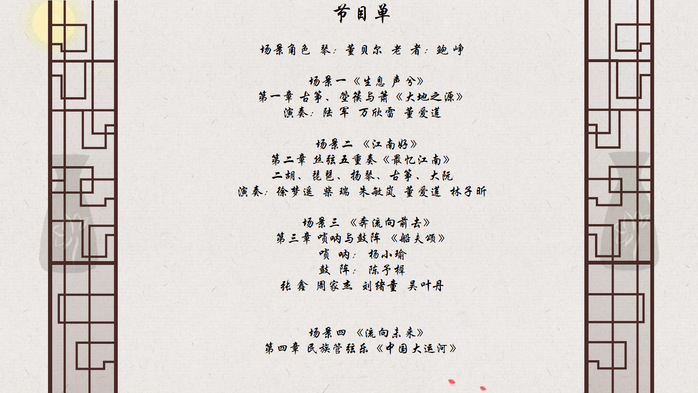 节目单
场景角色 琴：董贝尔 老 者：鲍 峥
场景一《生息 声兮》
第一章 古筝、箜篌与箫《大地之源》
演奏：陆 军 万欣雷 董爱道
场景二 《江南好》
第二章 丝弦五重奏《最忆江南》
二胡、琵琶、扬琴、古筝、大阮
演奏：徐梦遥 柴 瑞 朱敏岚 董爱道 林子昕
场景三 《奔流向前去》
第三章 唢呐与鼓阵 《船夫颂》
唢 呐：杨小瑜
鼓 阵：陈予樨
张 鑫 周家杰 刘绪童 吴叶丹
场景四 《流向未来》
第四章 民族管弦乐《中国大运河》